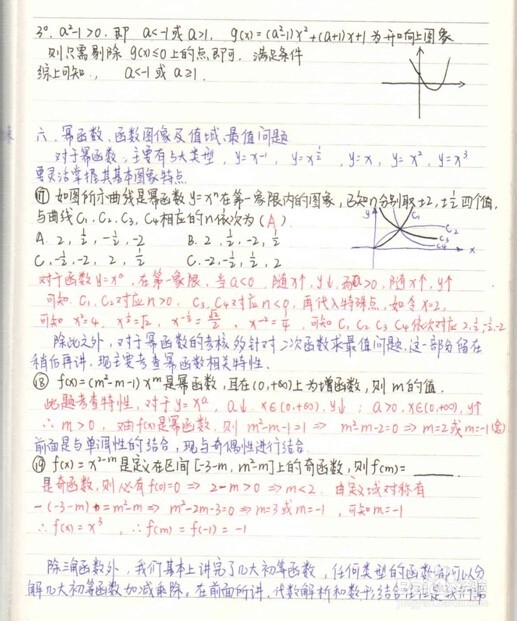 3° a²-1>0. 即 a<-1或a>1, g(x)=(a²-1)x²+(a+1)x+1为开口向上图象
则只需剔除g(x)≤0上的点即可. 满足条件
综上可知., a<-1 或 a≥1.
六. 幂函数. 函数图像及值域. 最值问题
对于幂函数, 主要有5大类型, y=x⁻¹, y=x^½, y=x, y=x², y=x³
要灵活掌握其基本图象特点
⑰ 如图所示曲线是幂函数y=xⁿ在第一象限内的图象, 已知n分别取±2, ±½四个值,
与曲线C₁. C₂. C₃, C₄相应的n依次为(A)
A. 2, ½, -½, -2 B. 2, ½, -2, ½
C, -½, -2, 2, ½ C. -2, -½, ½, 2
y C₁ C₂ C₃ C₄ x
对于函数y=xᵅ, 在第一象限, 当a<0, 随x↑, y↓, a>0, 随x↑, y↑
可知. C₁, C₂对应n>0. C₃, C₄对应n<0, 再代入特殊点, 如令x=2,
可知 x²=4, x^½=√2, x^-½=√2/2, x⁻²=¼, 可知C₁ C₂ C₃ C₄依次对应2, ½, -½, -2
除此之外, 对于幂函数的考核多针对二次函数求最值问题. 这一部分留在
稍后再讲. 现主要考查幂函数相关特性.
⑱ f(x)=(m²-m-1)xᵐ是幂函数, 且在(0,+∞)上为增函数, 则m的值.
此题考查特性, 对于y=xᵅ, a↓. x∈(0,+∞), y↓; a>0, x∈(0,+∞), y↑
∴ m>0, 又由f(x)是幂函数, 则 m²-m-1=1 ⇒ m²-m-2=0 ⇒ m=2或m=-1(舍)
前面是与单调性的结合, 现与奇偶性进行结合.
⑲ f(x)=x^2-m是定义在区间[-3-m, m²-m]上的奇函数, 则f(m)=
是奇函数, 则必有f(0)=0 ⇒ 2-m>0 ⇒ m<2. 由定义域对称有
-(-3-m)=m²-m ⇒ m²-2m-3=0 ⇒ m=3或m=-1, 可知m=-1
∴ f(x)=x³, ∴ f(m)=f(-1)=-1
除三角函数外, 我们基本上讲完了几大初等函数, 任何类型的函数都可以分
解几大初等函数加减乘除, 在前面所讲, 代数解析和数形结合